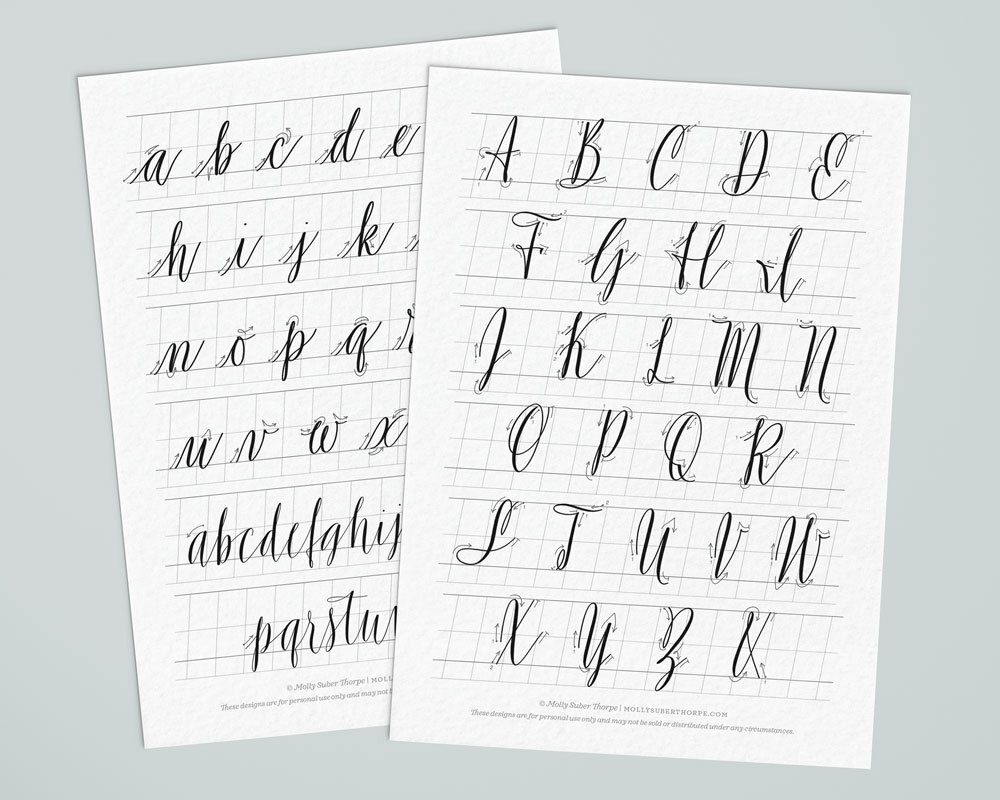 a b c d e
h i j k
n o p q
u v w x
abcdefghij
pqrstuv
© Molly Suber Thorpe |
These designs are for personal use only and may not
A B C D E
F G H I
J K L M N
O P Q R
S T U V W
X Y Z &
© Molly Suber Thorpe | MOLLYSUBERTHORPE.COM
These designs are for personal use only and may not be sold or distributed under any circumstances.